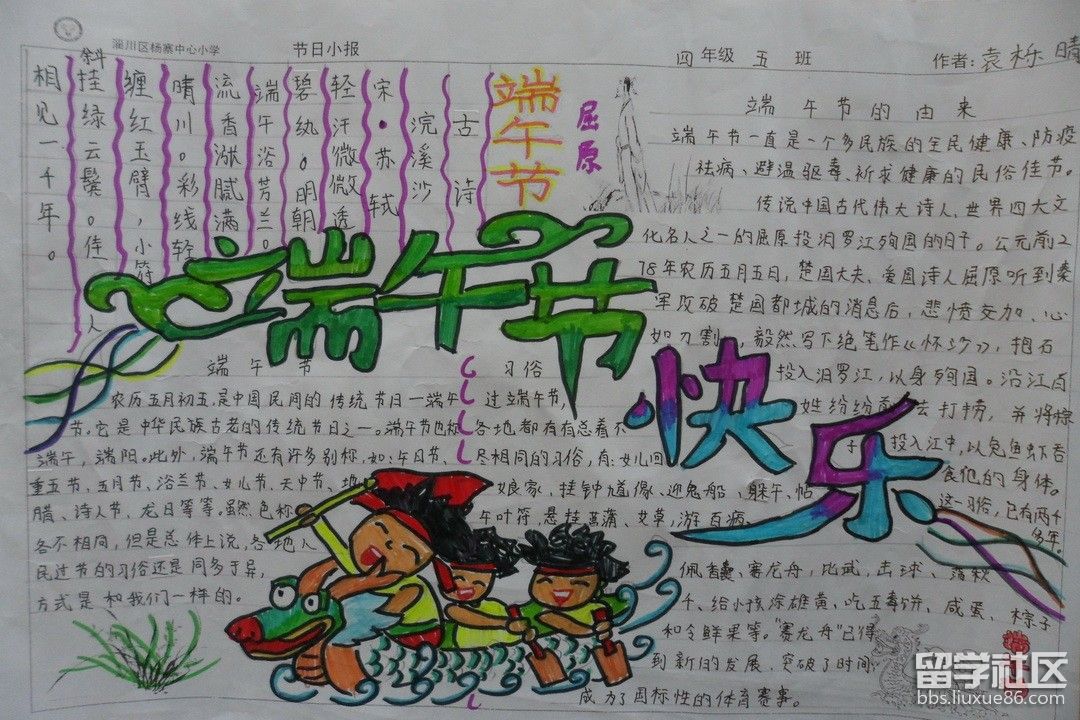 淄川区杨寨中心小学
节日小报
四年级 五 班
作者：袁栎晴
端午节
屈原
古诗
浣溪沙
宋·苏轼
轻汗微微透
碧纨。明朝
端午浴芳兰。
流香涨腻满
晴川。彩线轻
缠红玉臂，小符
斜挂绿云鬟。佳人
相见一千年。
端午节快乐
端午节的由来
端午节一直是一个多民族的全民健康、防疫
祛病、避温驱毒、祈求健康的民俗佳节。
传说中国古代伟大诗人、世界四大文
化名人之一的屈原投汨罗江殉国的日子。公元前2
78年农历五月五日，楚国大夫、爱国诗人屈原听到秦
军攻破楚国都城的消息后，悲愤交加、心
如刀割，毅然写下绝笔作《怀沙》，抱石
投入汨罗江，以身殉国。沿江百
姓纷纷 去打捞，并将粽
子 投入江中，以免鱼虾吞
食他的身体。
这一习俗，已有两千
多年。
端午节
农历五月初五，是中国民间的传统节日—端午
节。它是中华民族古老的传统节日之一。端午节也称
端午，端阳。此外，端午节还有许多别称，如：午日节、
重五节、五月节、浴兰节、女儿节、天中节、地
腊、诗人节、龙日等等。虽然名称
各不相同，但是总体上说，各地人
民过节的习俗还是同多于异，
方式是和我们一样的。
习俗
过端午节，
各地都有有总着不
尽相同的习俗，有：女儿回
娘家，挂钟馗像、迎鬼船、躲午，帖
午叶符，悬挂菖蒲、艾草，游百病，
佩香囊、赛龙舟，比武，击球、荡秋
千、给小孩涂雄黄、吃五毒饼、咸蛋、粽子
和令鲜果等。"赛龙舟"已得
到新的发展，突破了时间
成为了国标性的体育赛事。
留学社区
bbs.liuxue86.com